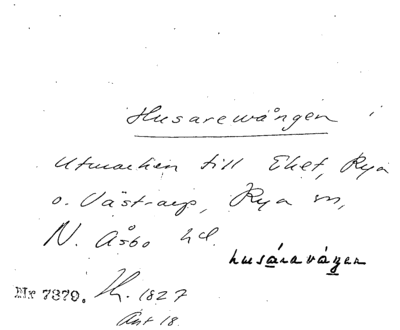 Husarewången
Utmarken till Ehet, Rya
o. Västraup, Rya sn,
N. Åsbo hd.
husáravá̱ŋen
Nr 7379. Th. 1827
Ant 18